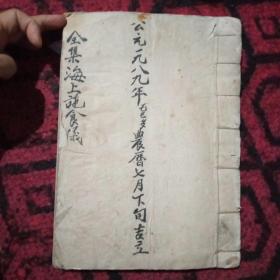 公元一九八九年己巳農曆七月下旬吉立
全集海上施食儀